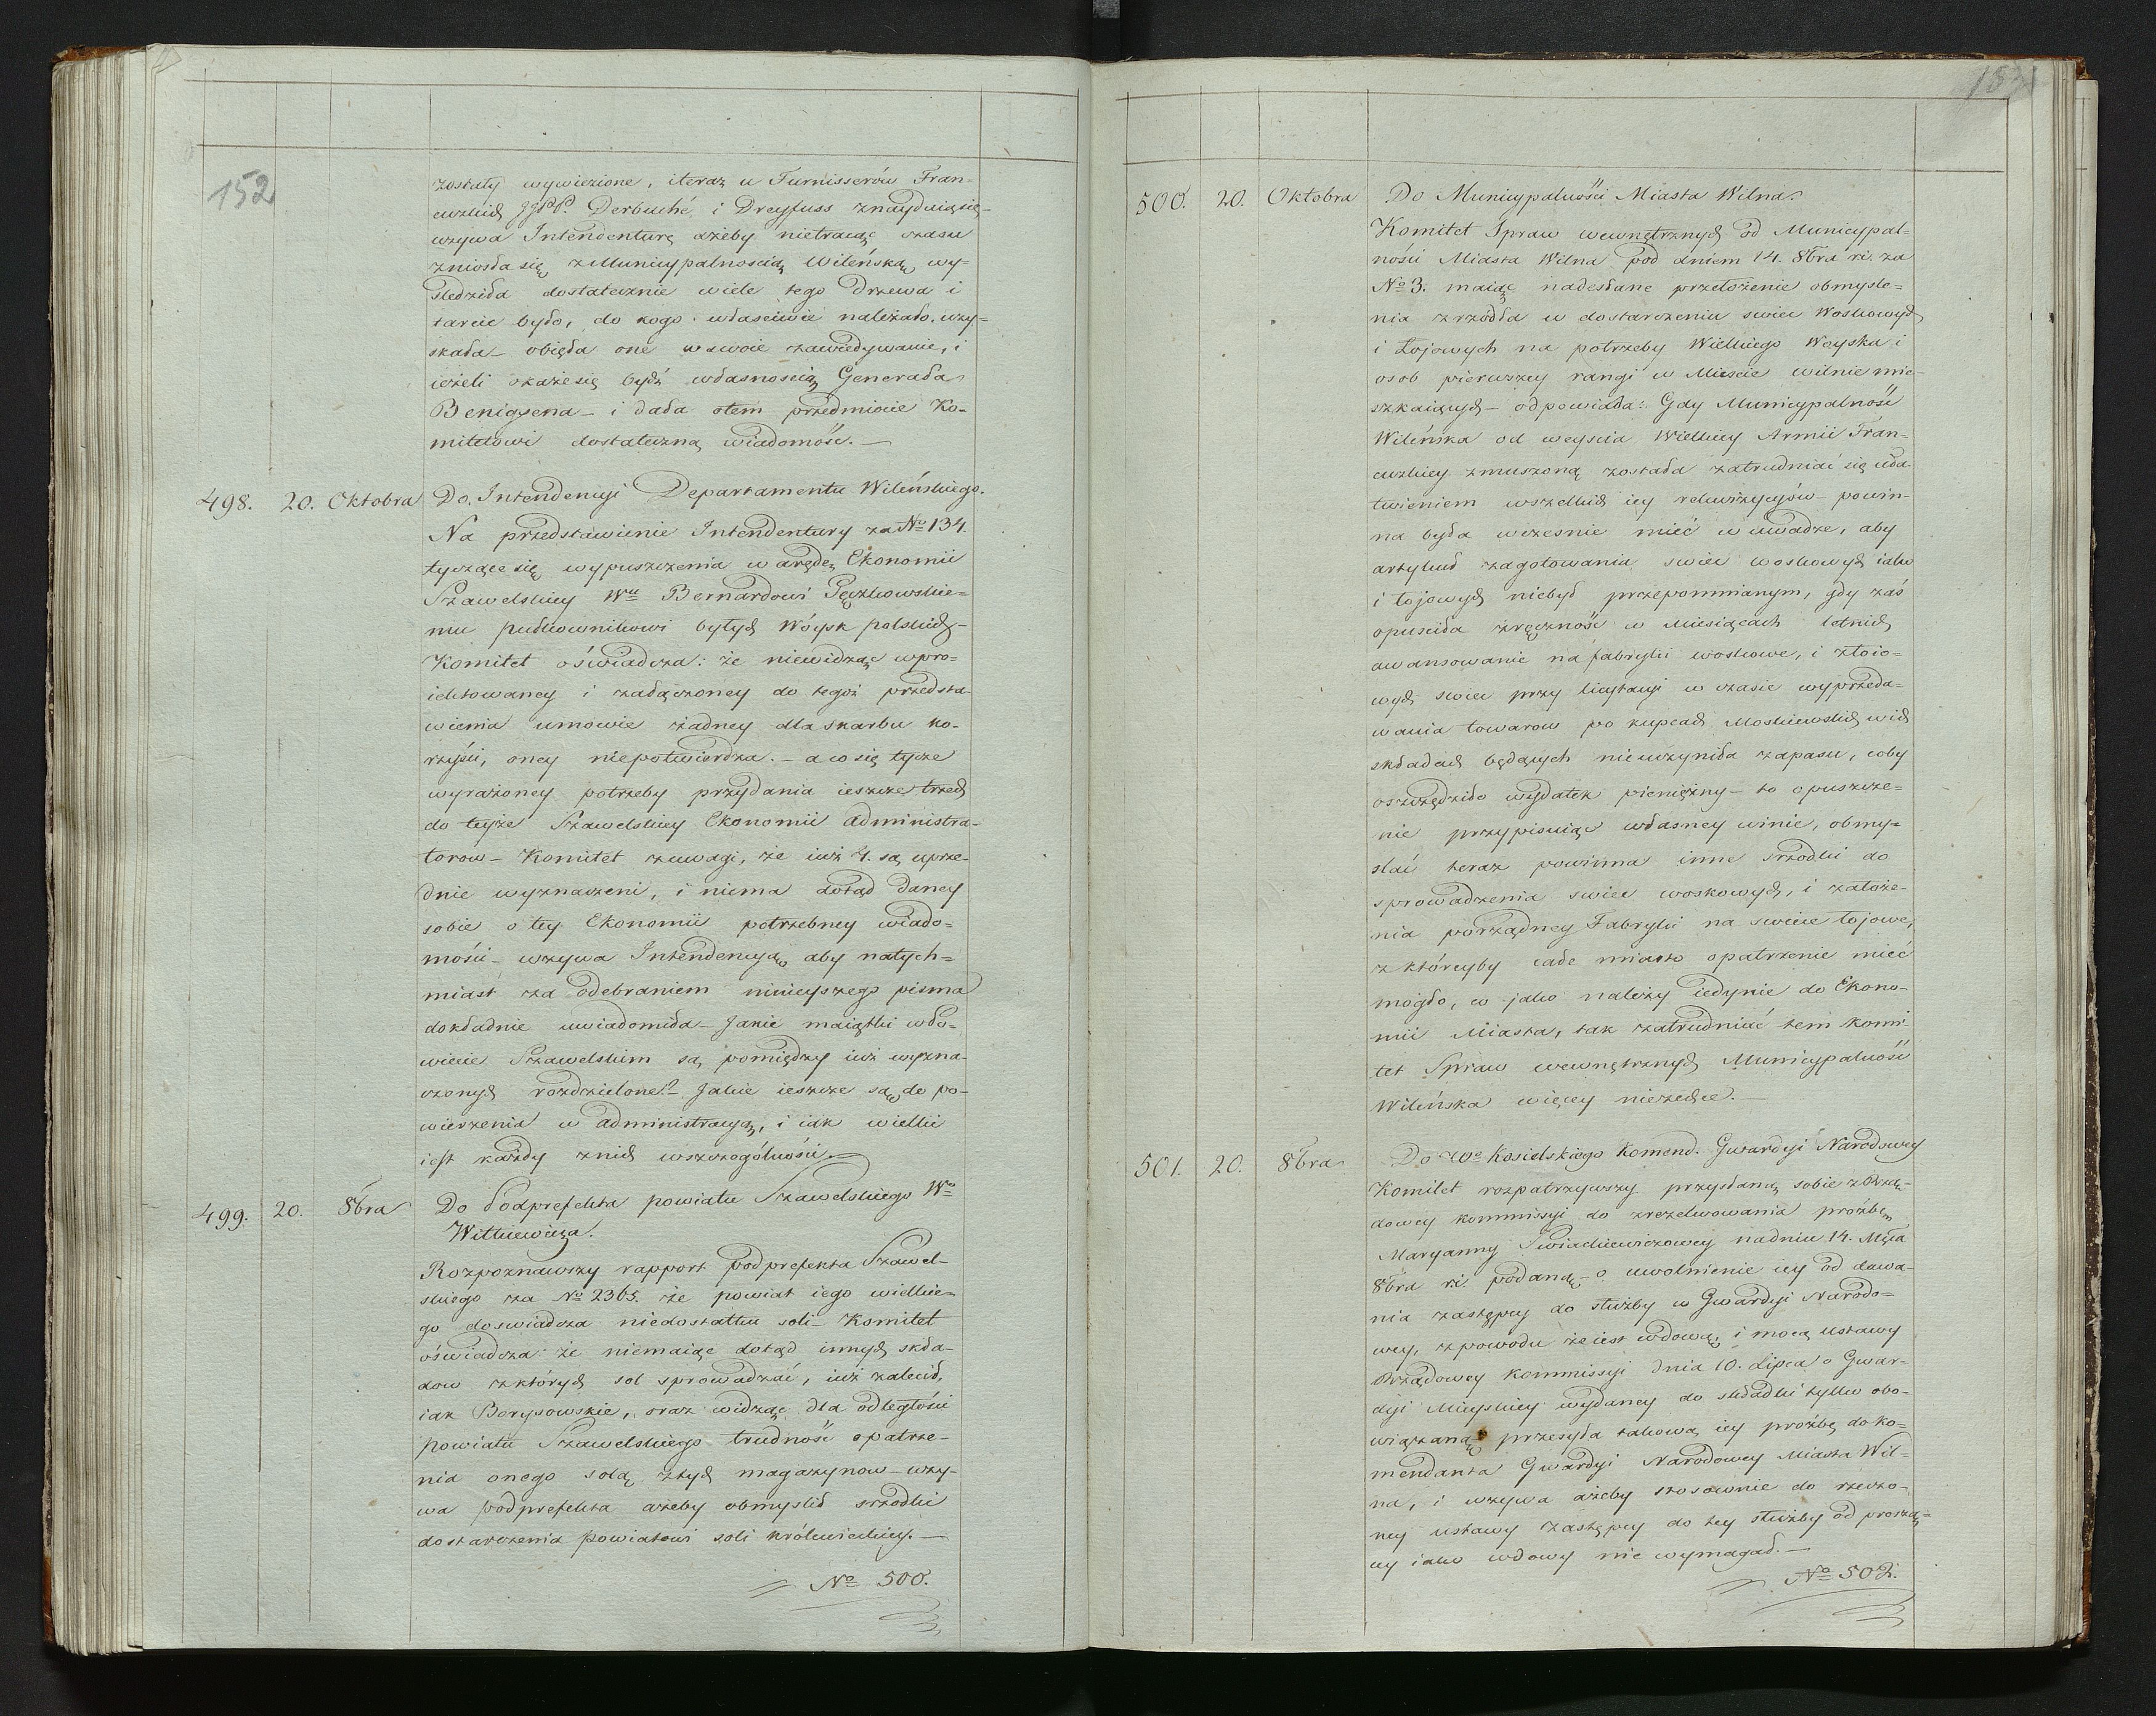 152
zostały wywiezione, i teraz u Furnisserów Fran=
cuzkich JJPP. Derbuché, i Dreyfuss znayduią się_
wzywa Intendenturę ażeby nietracąc czasu
zniosła się z Municypalnoscią Wileńską, wy=
sledziła dostatecznie wiele tego Drzewa i
tarcic było, do kogo własciwie należało, uzy=
skała_ obięła one w swoie zawiedywanie, i
ieżeli okaże się bydź własnoscią Generała
Benigsena_ i dała o tem przedmiocie Ko=
mitetowi dostateczną wiadomość._
498. 20. Oktobra Do Intendencyi Departamentu Wileńskiego.
Na przedstawienie Intendentury za No 134.
tyczące się wypuszczenia w arędę Ekonomii
Szawelskiey Wu Bernardowi Pączkowskie=
mu pułkownikowi byłych Wóysk polskich_
Komitet oświadcza: że niewidząc w pro=
iektowaney i załączoney do tegoż przedsta=
wienia umowie żadney dla skarbu ko=
rzyści, oney niepotwierdza._ a co się tycze
wyrażoney potrzeby przydania ieszcze trzech
do teyże Szawelskiey Ekonomii administra=
torow_ Komitet z uwagi, że iuż 4. są uprze=
dnie wyznaczeni, i niema dotąd daney
sobie o tey Ekonomii potrzebney wiado=
mości_ wzywa Intendencyą, aby natych=
miast za odebraniem ninieyszego pisma
dokładnie uwiadomiła_ Jakie maiątki w Po=
wiecie Szawelskim są, pomiędzy iuż wyzna=
czonych rozdzielone?_ Jakie ieszcze są do po=
wierzenia w administracyą, i iak wielki
iest każdy z nich w szczególności._
499. 20. 8bra Do Podprefekta powiatu Szawelskiego Wo
Witkiewicza.
Rozpoznawszy rapport Podprefekta Szawel=
skiego za No 2365. że powiat iego wielkie=
go doswiadcza niedostatku soli_ Komitet
oświadcza: że niemaiąc dotąd innych skła=
dow z których sol sprowadzać, iuż zalecił,
iak Borysowskie, oraz widząc dla odległości
powiatu Szawelskiego trudność opatrze=
nia onego solą z tych magazynow_ wzy=
wa Podprefekta ażeby obmyslił srzodki
dostarczenia Powiatowi soli królewieckiey._
No 500.
153
500. 20. Oktobra Do Municypalności Miasta Wilna.
Komitet Spraw wewnętrznych od Municypal=
ności Miasta Wilna pod dniem 14. 8bra r. za
No 3. maiąc nadesłane przełożenie obmysle=
nia zrzódła w dostarczeniu swiec Woskowych
i Łojowych na potrzeby Wielkiego Woyska i
osob pierwszey rangi w Miescie Wilnie mie=
szkaiących_ odpowiada: Gdy Municypalność
Wileńska od weyscia Wielkiey Armii Fran=
cuzkiey zmuszoną została zatrudniać się uła=
twieniem wszelkich iey rekwizycyów_ powin=
na była wczesnie mieć w uwadze, aby
artykuł zagotowania swiec woskowych iako
i łojowych niebył przepomnianym, gdy zaś
opusciła zręczność w Miesiącach letnich
awansowanie na fabryki woskowe, i z łoio=
wych swiec przy licytacyi w czasie wyprzeda=
wania towarow po kupcach Moskiewskich w ich
składach będących nieuczyniła zapasu, coby
oszczędziło wydatek pieniężny_ to opuszcze=
nie przypisuiąc własney winie, obmy=
slać teraz powinna inne srzodki do
sprowadzenia swiec woskowych, i założe=
nia porządney Fabryki na swiece łojowe,
z któreyby całe miasto opatrzenie mieć
mogło, co jako należy iedynie do Ekono=
mii Miasta, tak zatrudniać tem Komi=
tet Spraw wewnętrznych Municypalność
Wileńska więcey niezechce._
501. 20. 8bra Do Wo Kosielskiego Komend. Gwardyi Narodowey
Komitet rozpatrzywszy przysłaną sobie z Rzą=
dowey Kommissyi do zrezolwowania proźbę
Maryanny Swiackiewiczowey na dniu 14. Mca
8bra r. podaną_ o uwolnienie iey od dawa=
nia zastępcy do służby w Gwardyi Narodo=
wey, z powodu że iest wdową, i mocą ustawy
Rządowey Kommissyi dnia 10. Lipca o Gwar=
dyi Mieyskiey wydaney do składki tylko obo=
wiązaną_ przesyła takową iey proźbę do Ko=
mendanta Gwardyi Narodowey Miasta Wil=
na, i wzywa ażeby stosownie do rzeczo=
ney ustawy zastępcy do tey służby od proszą=
cey iako wdowy nie wymagał._
No 502.